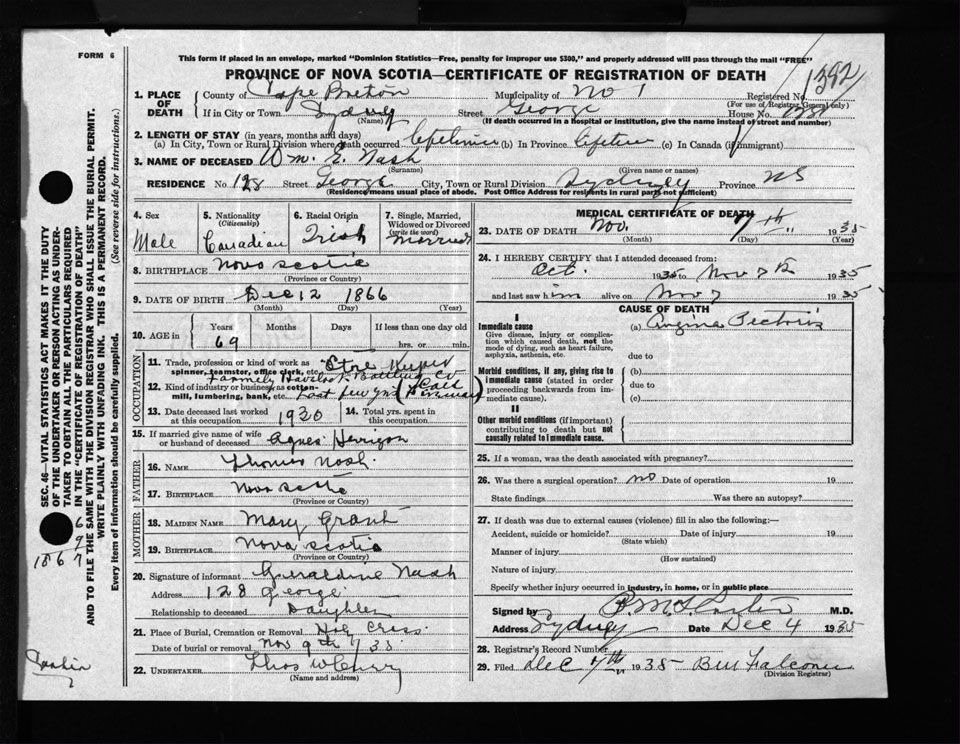 FORM 6
This form if placed in an envelope, marked "Dominion Statistics—Free, penalty for improper use $300," and properly addressed will pass through the mail "FREE"
PROVINCE OF NOVA SCOTIA—CERTIFICATE OF REGISTRATION OF DEATH
1392
1. PLACE OF DEATH
County of Cape Breton Municipality of No 1 Registered No.
(For use of Registrar General only)
If in City or Town Sydney Street George House No.
(Name) (If death occurred in a hospital or institution, give the name instead of street and number)
2. LENGTH OF STAY (in years, months and days)
(a) In City, Town or Rural Division where death occurred Lifetime (b) In Province Lifetime (c) In Canada (if immigrant)
3. NAME OF DECEASED Wm. E. Nash
(Surname) (Given name or names)
RESIDENCE No. 128 Street George City, Town or Rural Division Sydney Province NS
(Residence means usual place of abode. Post Office Address for residents in rural parts not sufficient)
4. Sex
Male
5. Nationality
(Citizenship)
Canadian
6. Racial Origin
Irish
7. Single, Married, Widowed or Divorced
(write the word)
Married
8. BIRTHPLACE Nova Scotia
(Province or Country)
9. DATE OF BIRTH Dec 12 1866
(Month) (Day) (Year)
10. AGE in
Years Months Days If less than one day
69 hrs. or min.
OCCUPATION
11. Trade, profession or kind of work as spinner, teamster, office clerk, etc. Store Keeper
12. Kind of industry or business as cotton-mill, lumbering, bank, etc. Formerly Bottling Co last few yrs
13. Date deceased last worked at this occupation 1930
14. Total yrs. spent in this occupation
15. If married give name of wife or husband of deceased Agnes
FATHER
16. NAME Thomas Nash
17. BIRTHPLACE Nova Scotia
(Province or Country)
MOTHER
18. MAIDEN NAME Mary Grant
19. BIRTHPLACE Nova Scotia
(Province or Country)
20. Signature of informant Geraldine Nash
Address 128 George
Relationship to deceased Daughter
21. Place of Burial, Cremation or Removal Holy Cross
Date of burial or removal Nov 9th 1935
22. UNDERTAKER Thos W Curry
(Name and address)
MEDICAL CERTIFICATE OF DEATH
23. DATE OF DEATH Nov. 7th 1935
(Month) (Day) (Year)
24. I HEREBY CERTIFY that I attended deceased from:
Oct. 1935 to Nov 7th 1935
and last saw him alive on Nov 7 1935
CAUSE OF DEATH
I
Immediate cause (a) Angina Pectoris
Give disease, injury or complication which caused death, not the mode of dying, such as heart failure, asphyxia, asthenia, etc.
due to
Morbid conditions, if any, giving rise to immediate cause (stated in order proceeding backwards from immediate cause).
(b)
due to
(c)
II
Other morbid conditions (if important) contributing to death but not causally related to immediate cause.
25. If a woman, was the death associated with pregnancy?
26. Was there a surgical operation? no Date of operation 19
State findings Was there an autopsy?
27. If death was due to external causes (violence) fill in also the following:—
Accident, suicide or homicide? Date of injury 19
(State which)
Manner of injury
(How sustained)
Nature of injury
Specify whether injury occurred in industry, in home, or in public place
Signed by M.D.
Address Sydney Date Dec 4 1935
28. Registrar's Record Number
29. Filed Dec 7th 1935 BM Falconer
(Division Registrar)
SEC. 46—VITAL STATISTICS ACT MAKES IT THE DUTY OF THE UNDERTAKER OR PERSON ACTING AS UNDERTAKER TO OBTAIN ALL THE PARTICULARS REQUIRED IN THE "CERTIFICATE OF REGISTRATION OF DEATH" AND TO FILE THE SAME WITH THE DIVISION REGISTRAR WHO SHALL ISSUE THE BURIAL PERMIT.
WRITE PLAINLY WITH UNFADING INK. THIS IS A PERMANENT RECORD.
Every item of information should be carefully supplied. (See reverse side for instructions.)